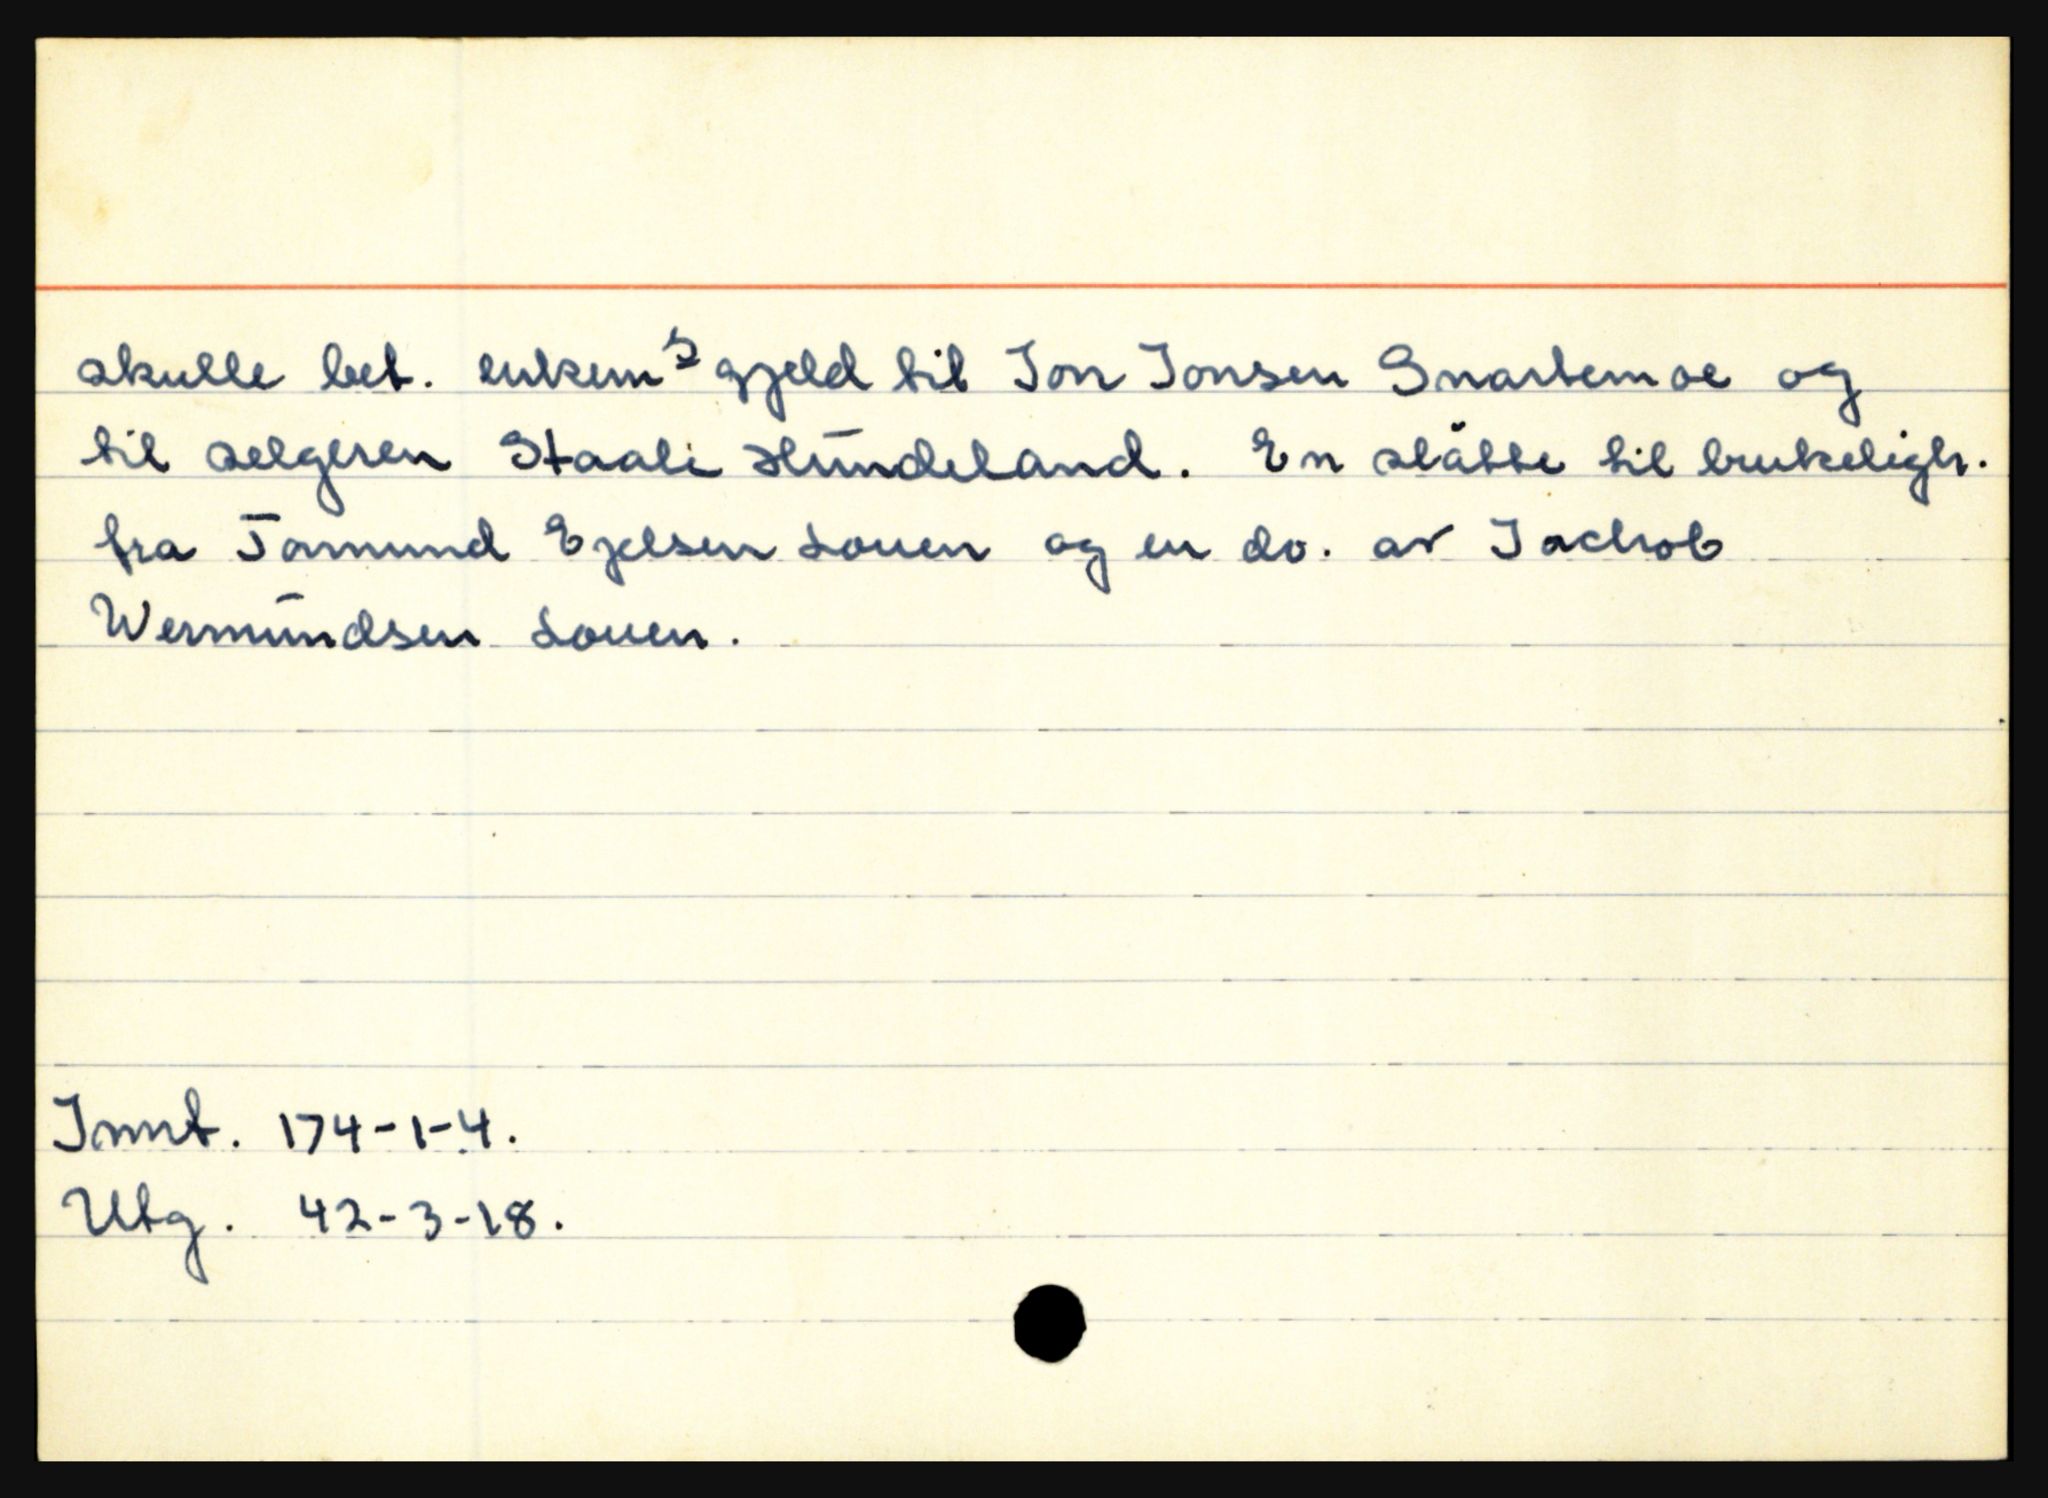 skulle bet. enkens gjeld til Jon Jonsen Snartemoe og
til selgeren Staali Hundeland. En slåtte til brukeligh.
fra Tormund Ejelsen Louen og en do. av Jachob
Wermundsen Louen.
Innt. 174-1-4.
Utg. 42-3-18.